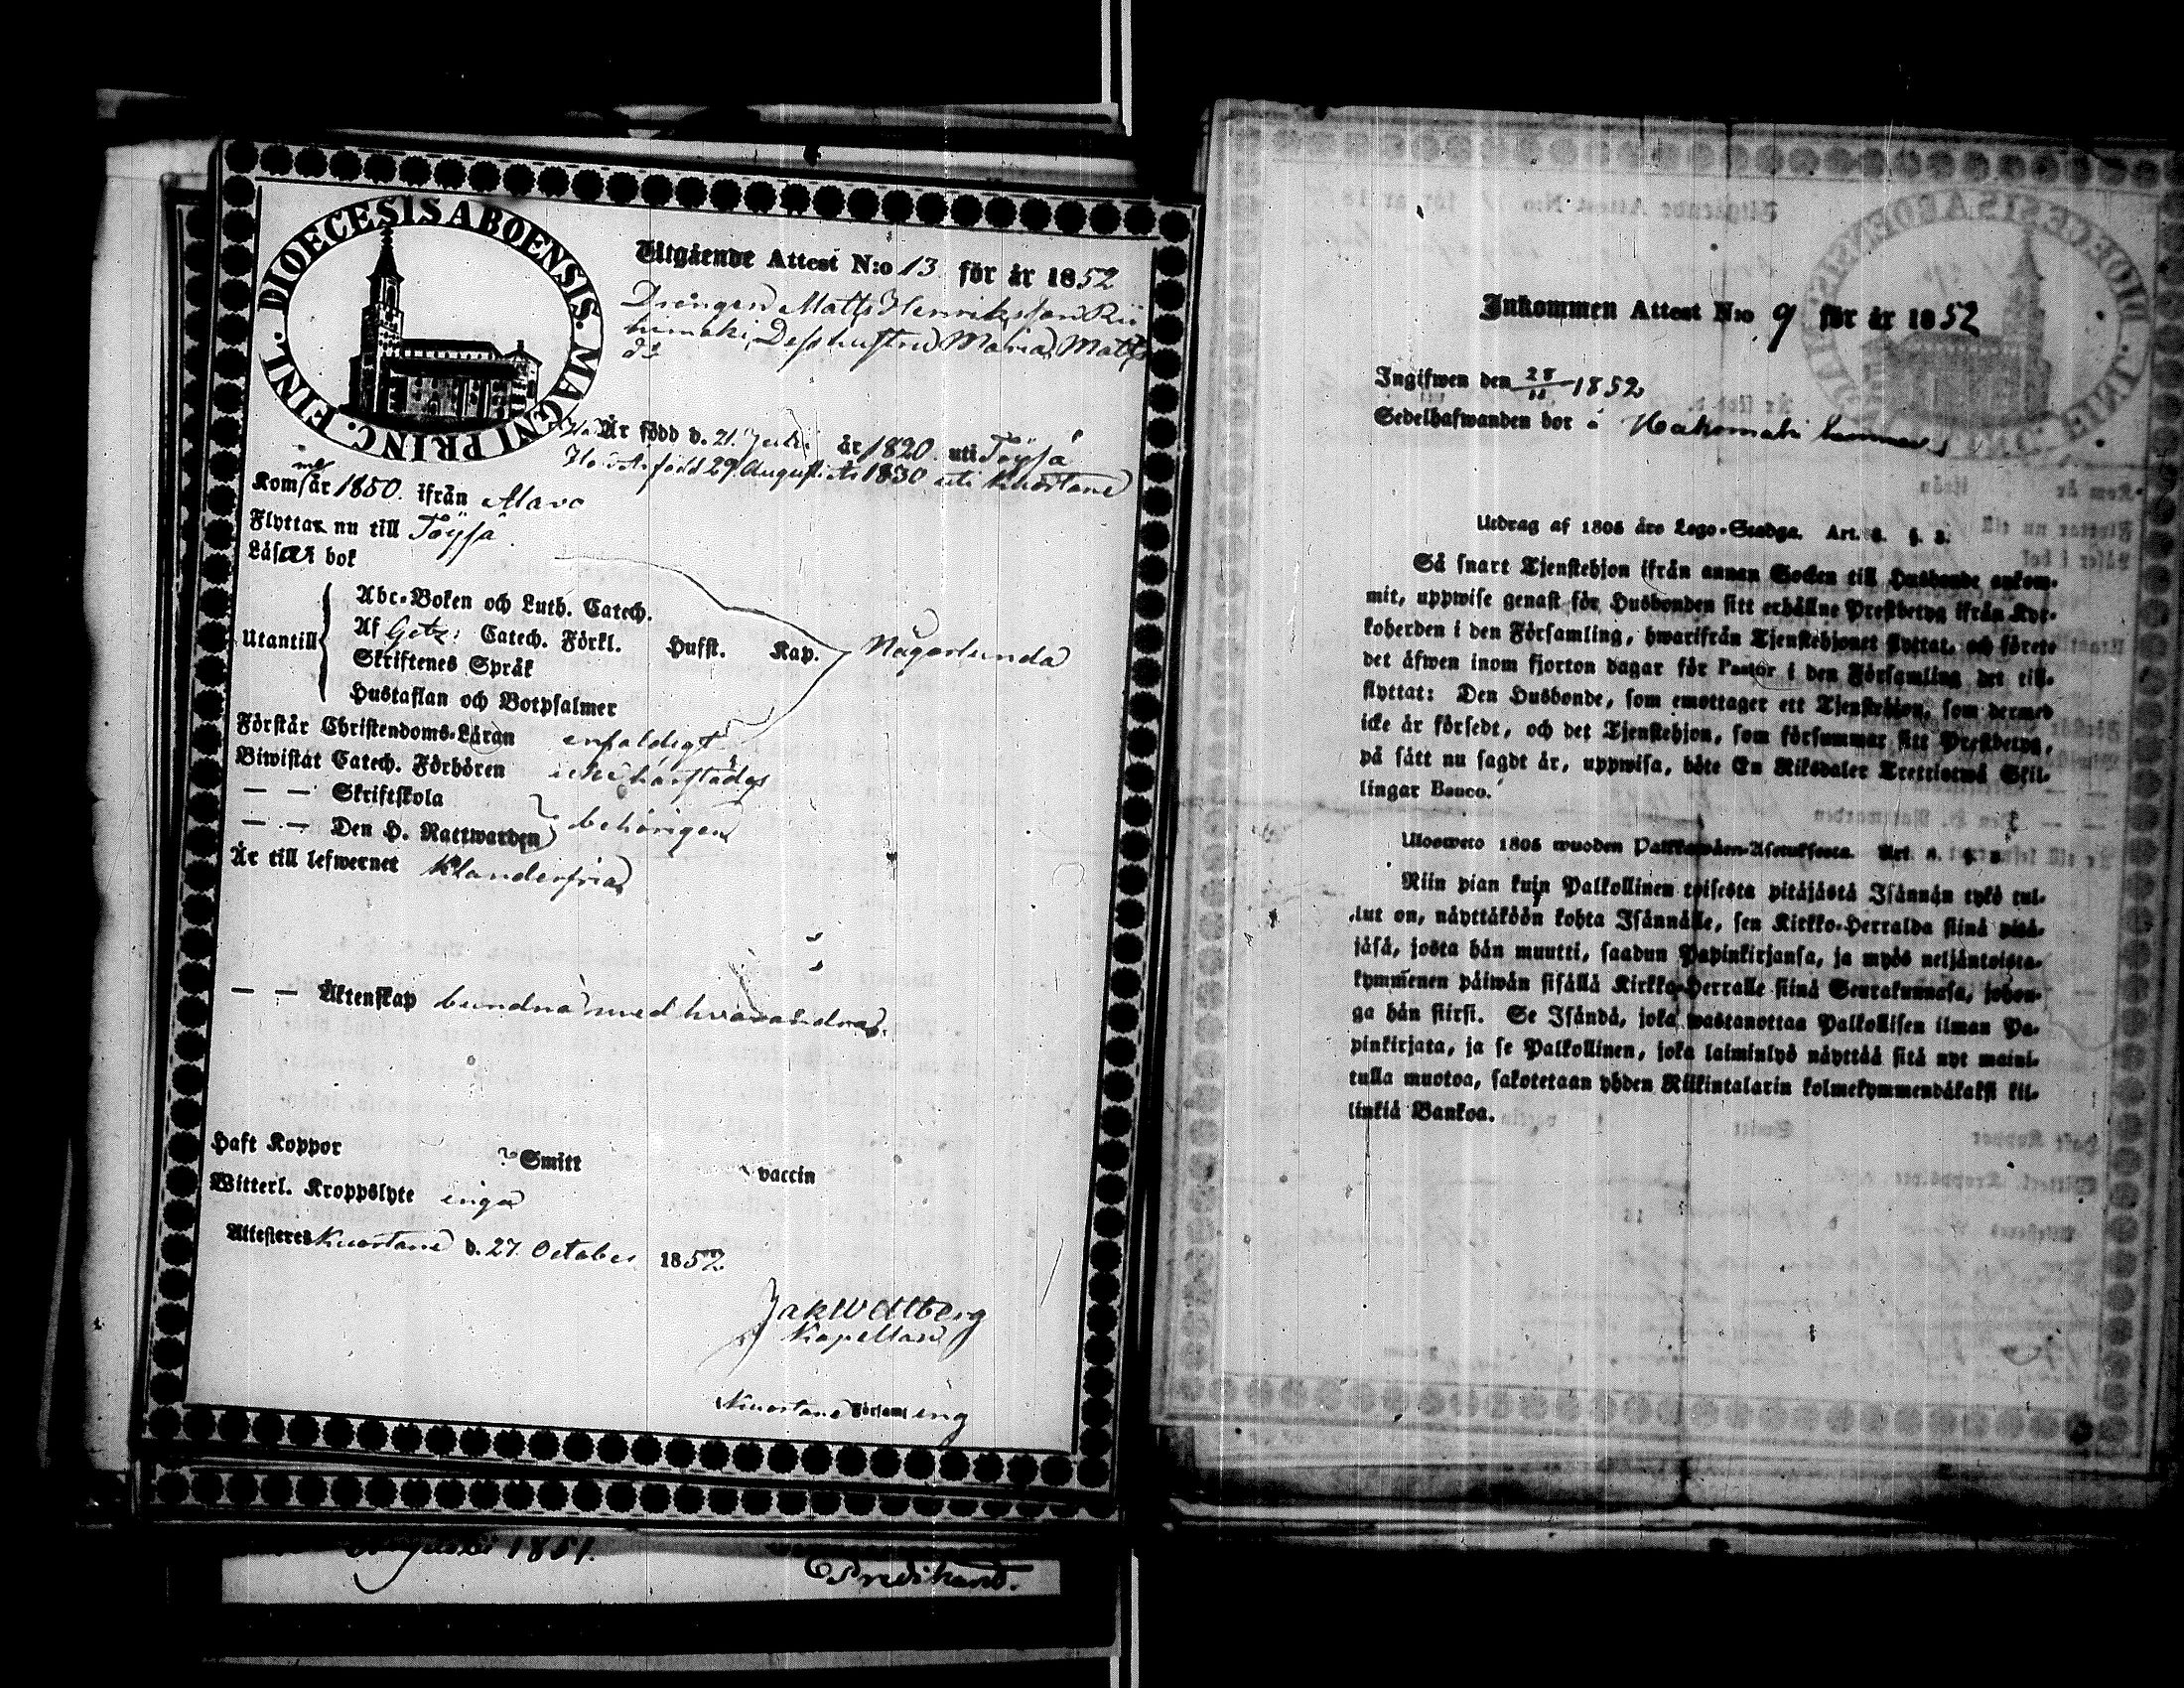 DIOECESIS ABOENSIS. MAGNI PRINC. FINL.
Utgående Attest N:o 13. för år 1852
Drengen Matts Henriksson Rii
himäki, Dess hustru Maria Matts
dr
Är född d. 21. Juli år 1820. uti Töysä
född 29 Augusti 1830 uti Kuortane
Kom år 1850. ifrån Alavo
Flyttar nu till Töysä
Läsa i bok
Abc-Boken och Luth. Catech.
Utantill Af Getz: Catech. Förkl. Husst. Kap. Någorlunda
Skriftenes Språk
Hustaflan och Botpsalmer
Förstår Christendoms-Läran enfaldigt
Biwistat Catech. Förhören icke härstädes
— — Skriftskola
— — Den H. Nattwarden behörigen
Är till lefwernet klanderfria
— — Äktenskap bundna med hvarandra.
Haft Koppor Smitt vaccin
Witterl. Kroppslyte inga
Attesteres Kuortane d. 27. October 1852.
Jak Wettberg
Kapellan
Kuortane Församl ing
Augusti 1851.
Inkommen Attest N:o 9 för år 1852
Ingifwen den 28/11 1852
Sedelhafwanden bor å Hakomäki
Utdrag af 1805 års Lego-Stadga. Art. 8. §. 3.
Så snart Tjenstehjon ifrån annan Socken till Husbonde ankom-
mit, uppwise genast för Husbonden sitt erhållne Prestbetyg ifrån Kyr-
koherden i den Församling, hwarifrån Tjenstehjonet flyttat, och förete
det äfwen inom fjorton dagar för Pastor i den Församling det till-
flyttat: Den Husbonde, som emottager ett Tjenstehjon, som dermed
icke är försedt, och det Tjenstehjon, som försummar sitt Prestbetyg,
på sätt nu sagdt är, uppwisa, böte En Riksdaler Trettiotwå Skil-
lingar Banco.
Ulosweto 1805 wuoden Palkkawäen-Asetuksesta. Art. 8. §. 3.
Niin pian kuin Palkollinen toisesta pitäjästä Isännän tykö tul-
lut on, näyttäköön kohta Isännälle, sen Kirkko-Herralda siinä pitä-
jäsä, josta hän muutti, saadun Papinkirjansa, ja myös neljäntoista-
kymmenen päiwän sisällä Kirkko-Herralle siinä Seurakunnasa, johon-
ga hän siirsi. Se Isändä, joka wastanottaa Palkollisen ilman Pa-
pinkirjata, ja se Palkollinen, joka laiminlyö näyttää sitä nyt maini-
tulla muotoa, sakotetaan yhden Riikintalarin kolmekymmendäkaksi kil-
linkiä Bankoa.